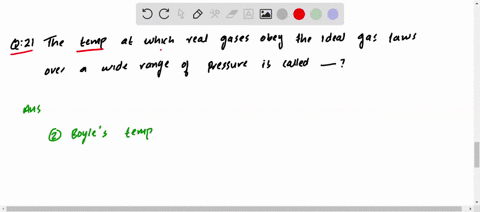 Q:21 The temp at which real gases obey the ideal gas laws
over a wide range of pressure is called — ?
Ans
② Boyle's temp